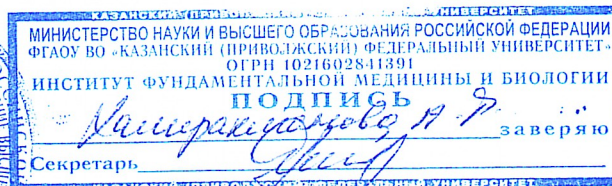 КАЗАНСКИЙ (ПРИВОЛЖСКИЙ) ФЕДЕРАЛЬНЫЙ УНИВЕРСИТЕТ
МИНИСТЕРСТВО НАУКИ И ВЫСШЕГО ОБРАЗОВАНИЯ РОССИЙСКОЙ ФЕДЕРАЦИИ
ФГАОУ ВО «КАЗАНСКИЙ (ПРИВОЛЖСКИЙ) ФЕДЕРАЛЬНЫЙ УНИВЕРСИТЕТ»
ОГРН 1021602841391
ИНСТИТУТ ФУНДАМЕНТАЛЬНОЙ МЕДИЦИНЫ И БИОЛОГИИ
ПОДПИСЬ
заверяю
Секретарь